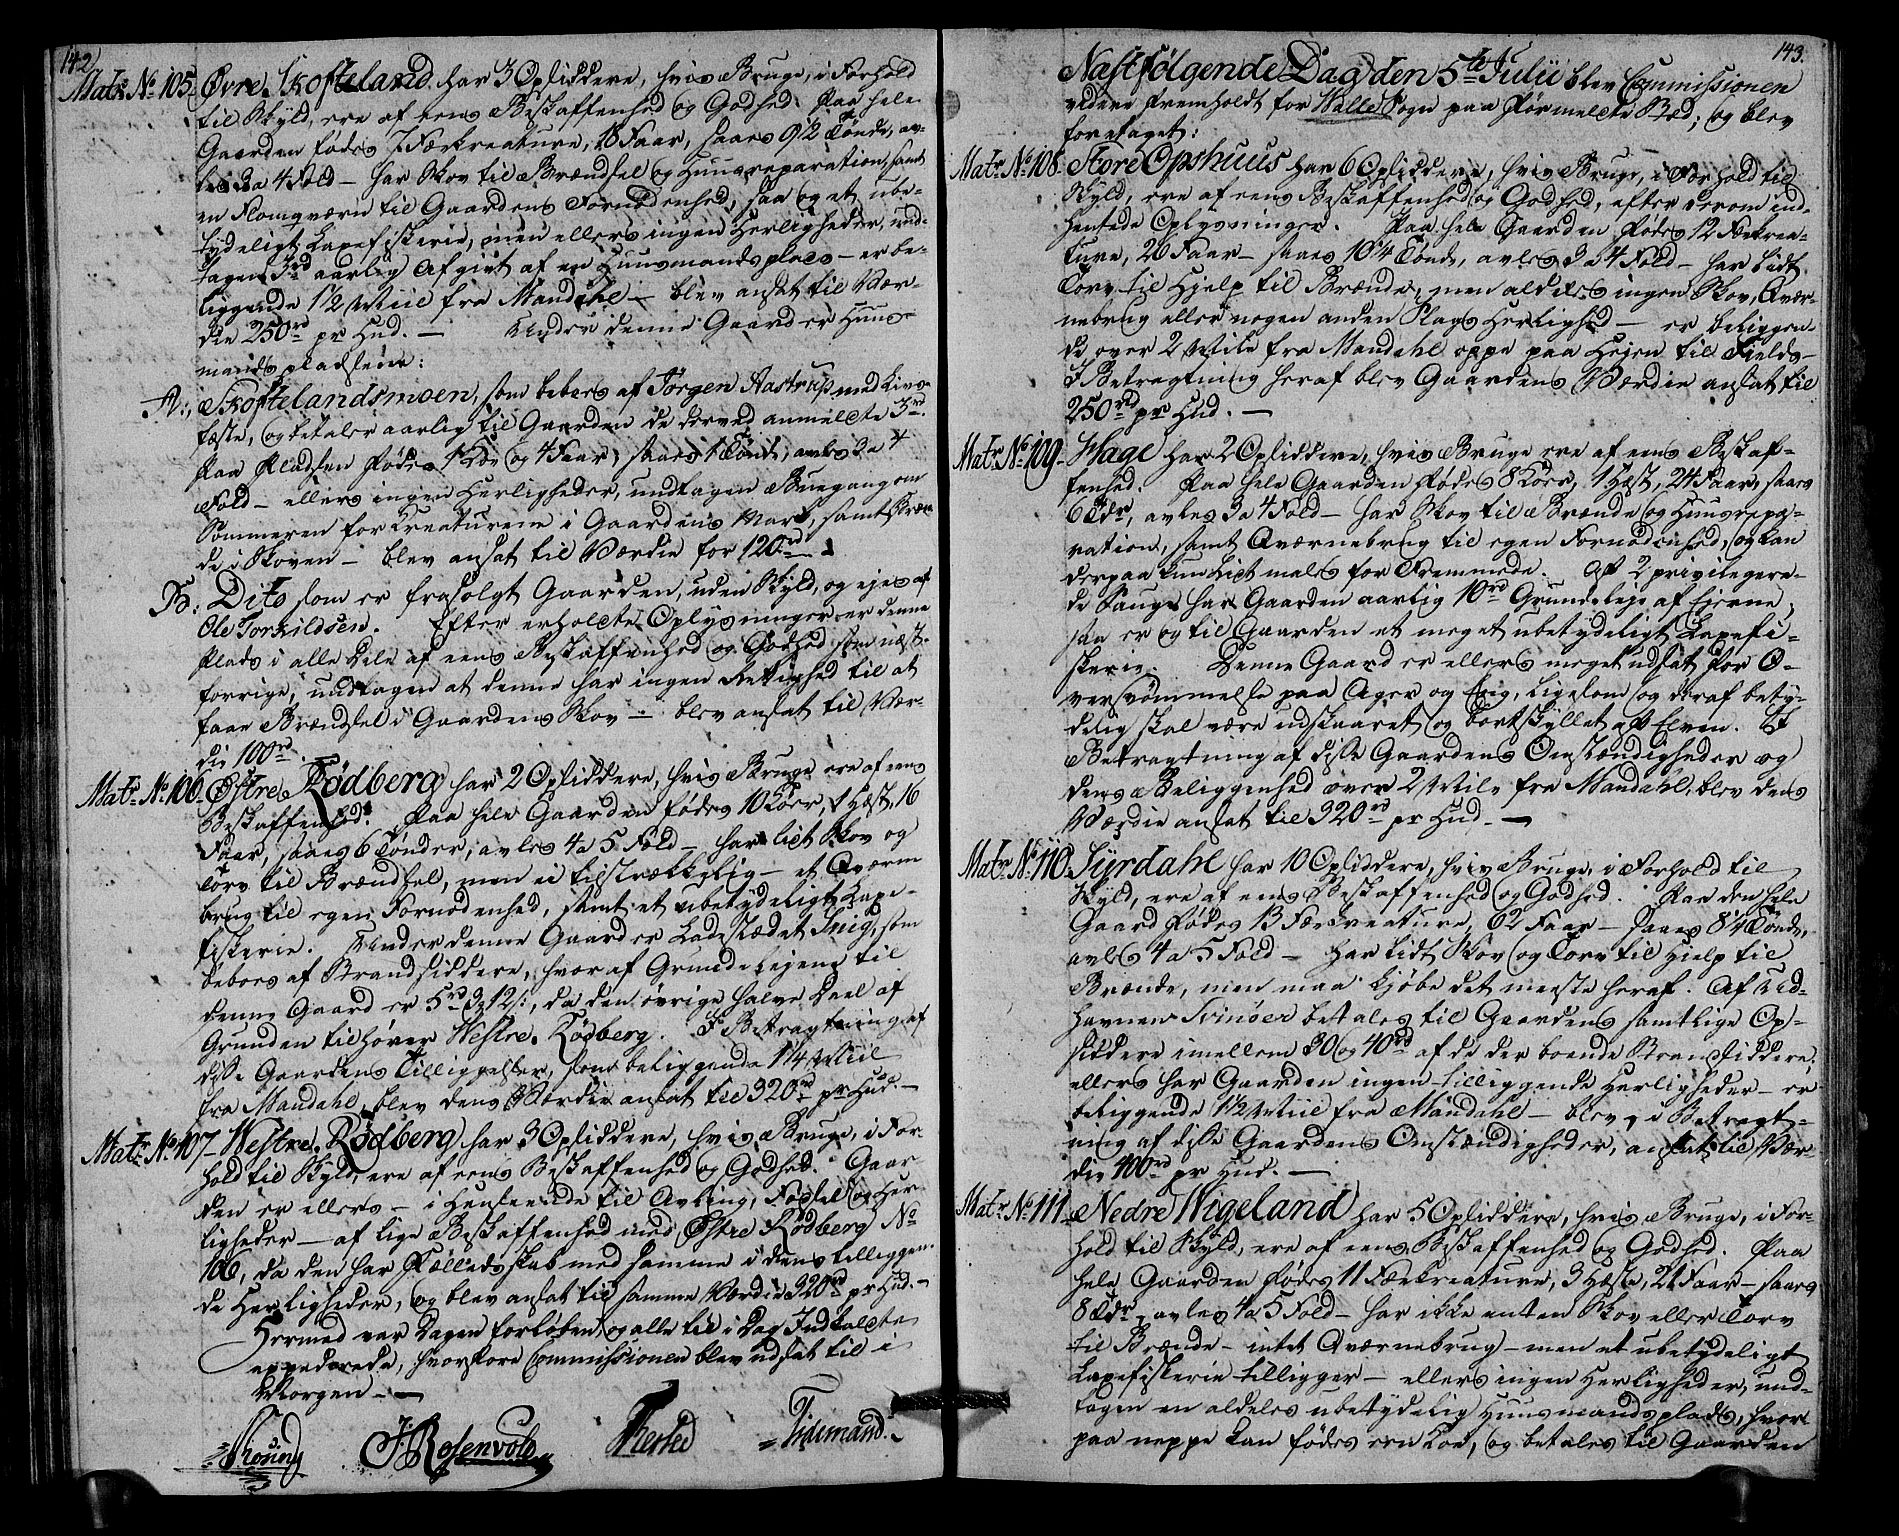 142
Matr. No. 105. Øvre Skofteland har 3 Opsiddere, hvis Bruge, i Forhold
til Skyld, ere af eens Beskaffenhed og Godhed. Paa hele
Gaarden fødes 7 Færkreature, 18 Faar, saaes 9 1/2 Tønde, av-
les 3 a 4 Fold – har Skov til Brændsel og Huusreparation, samt
en Flomqværn til Gaardens Fornødenhed, saa og et ube-
tydeligt Laxefiskerie, men ellers ingen Herligheder, und-
tagen 3rd aarlig Afgivt af en Huusmandsplads – er be-
liggende 1 1/2 Miil fra Mandahl – blev ansat til Vær-
die 250rd pr Hud. – Under denne Gaard er Huus-
mandspladsene:
A:, Skoftelandsmoen, som beboes af Jørgen Aastrup med Livs-
fæste, og betaler aarlig til Gaarden de derved anmeldte 3rd.
Paa Pladsen fødes 1 Koe og 4 Faar, saaes 1 Tønde, avles 3 a 4
Fold – ellers ingen Herligheder, undtagen Buegang om
Sommeren for Kreaturene i Gaardens Mark, samt Bræn-
de i Skoven – blev ansat til Værdie for 120rd
B: Dito som er frasolgt Gaarden, uden Skyld, og ejes af
Ole Torkildsen. Efter erholdte Oplysninger er denne
Plads i alle Dele af eens Beskaffenhed og Godhed som næst-
forrige, undtagen at denne har ingen Rettighed til at
faae Brændsel i Gaardens Skov – blev ansat til Vær-
die 100rd.
Matr. No. 106. Østre Rödberg har 2 Opsiddere, hvis Bruge ere af eens
Beskaffenhed. Paa hele Gaarden fødes 10 Køer, 1 Hæst, 16
Faar, saaes 6 Tønder, avles 4 a 5 Fold – har lidt Skov og
Torv til Brændsel, men ei tilstrækkelig – et Qværne
brug til egen Fornødenhed, samt et ubetydeligt Laxe-
fiskerie. Under denne Gaard er Ladestædet Snig, som
beboes af Strandsiddere, hvoraf Grundelejene til
denne Gaard er 5rd 3 12 s:, da den øvrige halve Deel af
Grunden tilhører Westre Rödberg. I Betragtning af
disse Gaardens Tilliggelser, som beliggende 1 1/4 Miil
fra Mandahl, blev dens Værdie ansat til 320rd pr Hud. –
Matr. No. 107 – Westre Rödberg har 3 Opsiddere, hvis Bruge, i For-
hold til Skyld, ere af eens Beskaffenhed og Godhed. Gaar-
den er ellers – i Henseende til Avling, Fødsel og Her-
ligheder – af lige Beskaffenhed med Østre Rödberg No
106, da den har Fælledsskab med samme i dens tilliggen-
de Herligheder, og blev ansat til samme Værdie 320rd pr Hud. –
Hermed var Dagen forløben, og alle til i Dag Indkaldte
expederede, hvorfore Commissionen blev udsat til i
Morgen. –
J Rosenvold Tidemand.
143.
Næstfølgende Dag den 5te Julii blev Commissionen
videre fremholdt for Halle Sogn paa formeldte Stæd; og blev
foretaget:
Matr. No. 108. Store Opshuus har 6 Opsiddere, hvis Bruge, i Forhold til
Skyld, ere af eens Beskaffenhed og Godhed, efter derom ind-
hentede Oplysninger. Paa hele Gaarden fødes 12 Færkrea-
ture, 26 Faar – saaes 10 1/4 Tønde, avles 3 a 4 Fold – har lidt
Torv til Hjelp til Brænde, men aldeles ingen Skov, Qvær-
nebrug eller nogen anden Slags Herlighed – er beliggen-
de over 2 Mile fra Mandahl oppe paa Hejen til Fields –
I Betragtning heraf blev Gaardens Værdie ansat til
250rd pr Hud. –
Matr. No. 109. Hage har 2 Opsiddere, hvis Bruge ere af eens Beskaf-
fenhed. Paa hele Gaarden fødes 8 Køer, 1 Hæst, 24 Faar, saaes
6 Tdr, avles 3 a 4 Fold – har Skov til Brænde og Huusrepa-
ration, samt Qværnebrug til egen Fornødenhed, og kan
derpaa kun lidt males for Fremmede. Af 2 privilegere-
de Sauge har Gaarden aarlig 10rd Grundeleje af Ejerne,
saa er og til Gaarden et meget ubetydeligt Laxefi-
skerie. Denne Gaard er ellers meget udsat for O-
versvømmelse paa Ager og Eng, ligesom og deraf bety-
delig skal være udskaaret og bortskyllet af Elven. I
Betragtning af disse Gaardens Omstændigheder og
dens Beliggenhed over 2 Mile fra Mandahl, blev dens
Værdie ansat til 320rd pr Hud. –
Matr. No. 110. Syrdahl har 10 Opsiddere, hvis Bruge, i Forhold til
Skyld, ere af eens Beskaffenhed og Godhed. Paa den hele
Gaard fødes 13 Færkreature, 62 Faar – saaes 8 1/4 Tønde,
avles 4 a 5 Fold – har lidt Skov og Torv til Hjelp til
Brænde, men maa kjøbe det meeste heraf. Af Ud-
havnen Svinøer betales til Gaardens samtlige Op-
siddere imellem 30 og 40rd af de der boende Strandsiddere,
ellers har Gaarden ingen tilliggende Herligheder – er
beliggende 1 1/2 Miil fra Mandahl – blev, i Betragt-
ning af disse Gaardens Omstændigheder, ansat til Vær-
die 400rd pr Hud. –
Matr. No. 111. Nedre Wigeland har 5 Opsiddere, hvis Bruge, i For-
hold til Skyld, ere af eens Beskaffenhed og Godhed. Paa
hele Gaarden fødes 11 Færkreature, 3 Hæste, 21 Faar – saaes
8 Tdr, avles 4 a 5 Fold – har ikke enten Skov eller Torv
til Brænde – intet Qværnebrug – men et ubetydeligt
Laxefiskerie tilligger – ellers ingen Herligheder, und-
tagen en aldeles ubetydelig Huusmandsplads, hvor-
paa neppe kan fødes een Koe, og betales til Gaarden